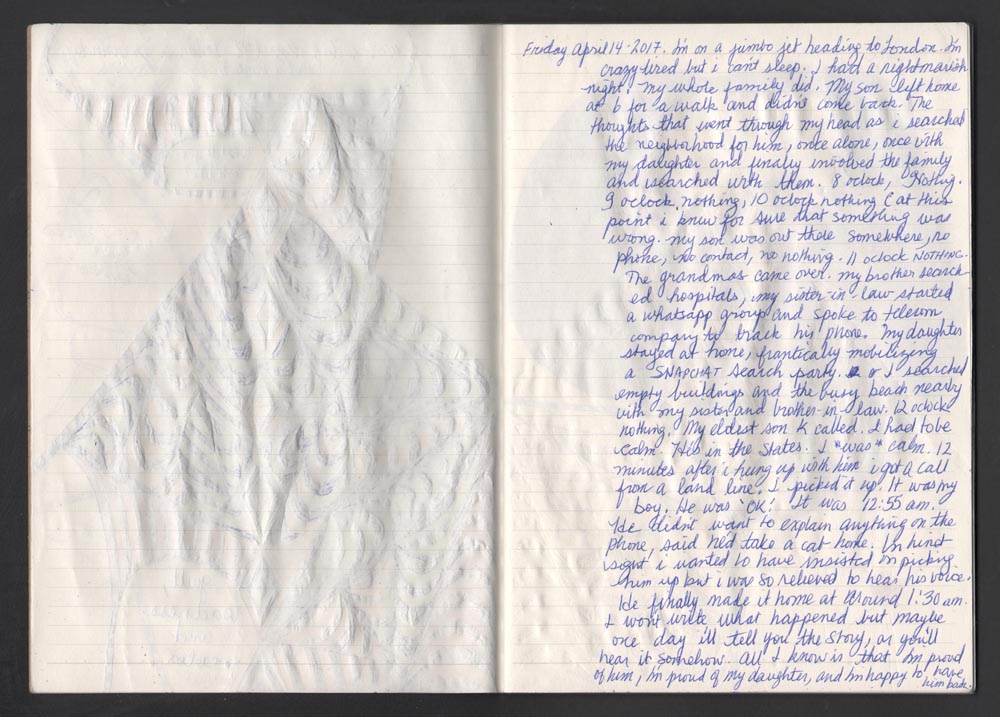 Friday April 14 - 2017. I'm on a jumbo jet heading to London. I'm
crazy tired but i can't sleep. I had a nightmarish
night. My whole family did. My son left home
at 6 for a walk and didn't come back. The
thoughts that went through my head as i searched
the neighborhood for him, once alone, once with
my daughter and finally involved the family
and searched with them. 8 oclock, Nothing.
9 oclock, nothing, 10 oclock nothing (at this
point i knew for sure that something was
wrong. my son was out there somewhere, no
phone, no contact, no nothing. 11 oclock NOTHING.
The grandmas came over. my brother search-
ed hospitals, my sister-in-law started
a whatsapp group and spoke to telecom
company to track his phone. My daughter
stayed at home, frantically mobilizing
a SNAPCHAT search party. I searched
empty buildings and the busy beach nearby
with my sister and brother-in-law. 12 oclock
nothing. My eldest son K called. I had to be
calm. He's in the States. I *was* calm. 12
minutes after i hung up with him i got a call
from a land line. I picked it up. It was my
boy. He was 'OK'. It was 12:55 am.
He didn't want to explain anything on the
phone, said he'd take a cat home. In hind
sight i wanted to have insisted on picking
him up but i was so relieved to hear his voice.
He finally made it home at around 1:30 am.
I won't write what happened but maybe
one day i'll tell you the story, or you'll
hear it somehow. All I know is that I'm proud
of him, i'm proud of my daughter, and i'm happy to have
him back.